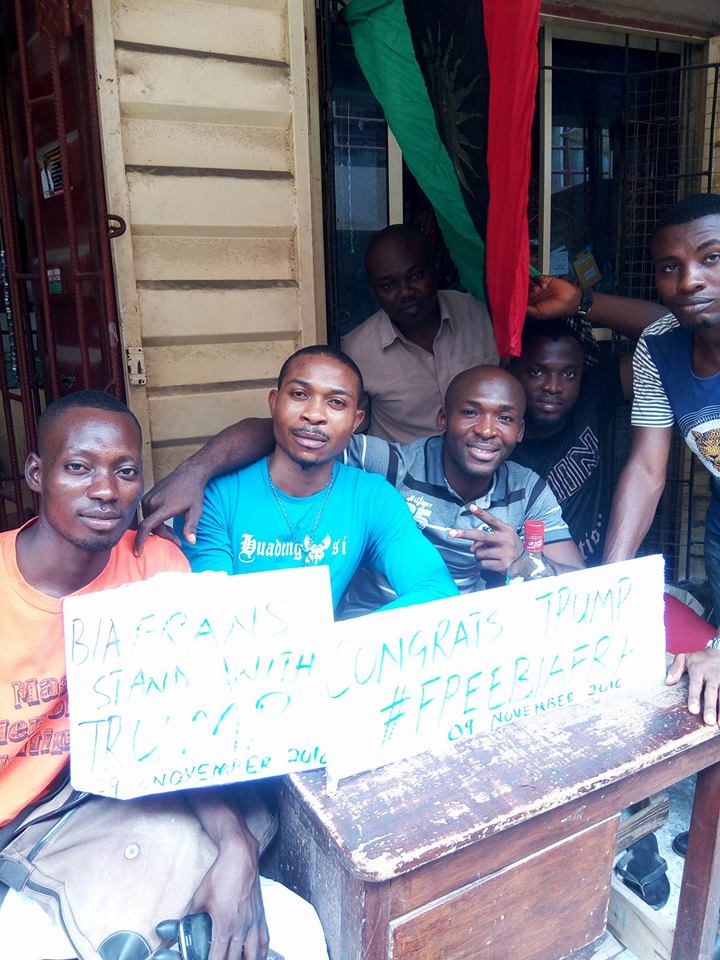 BIAFRANS
STAND WITH
TRUMP
09 NOVEMBER 2016
CONGRATS TRUMP
#FREEBIAFRA
09 NOVEMBER 2016
Huadeng si